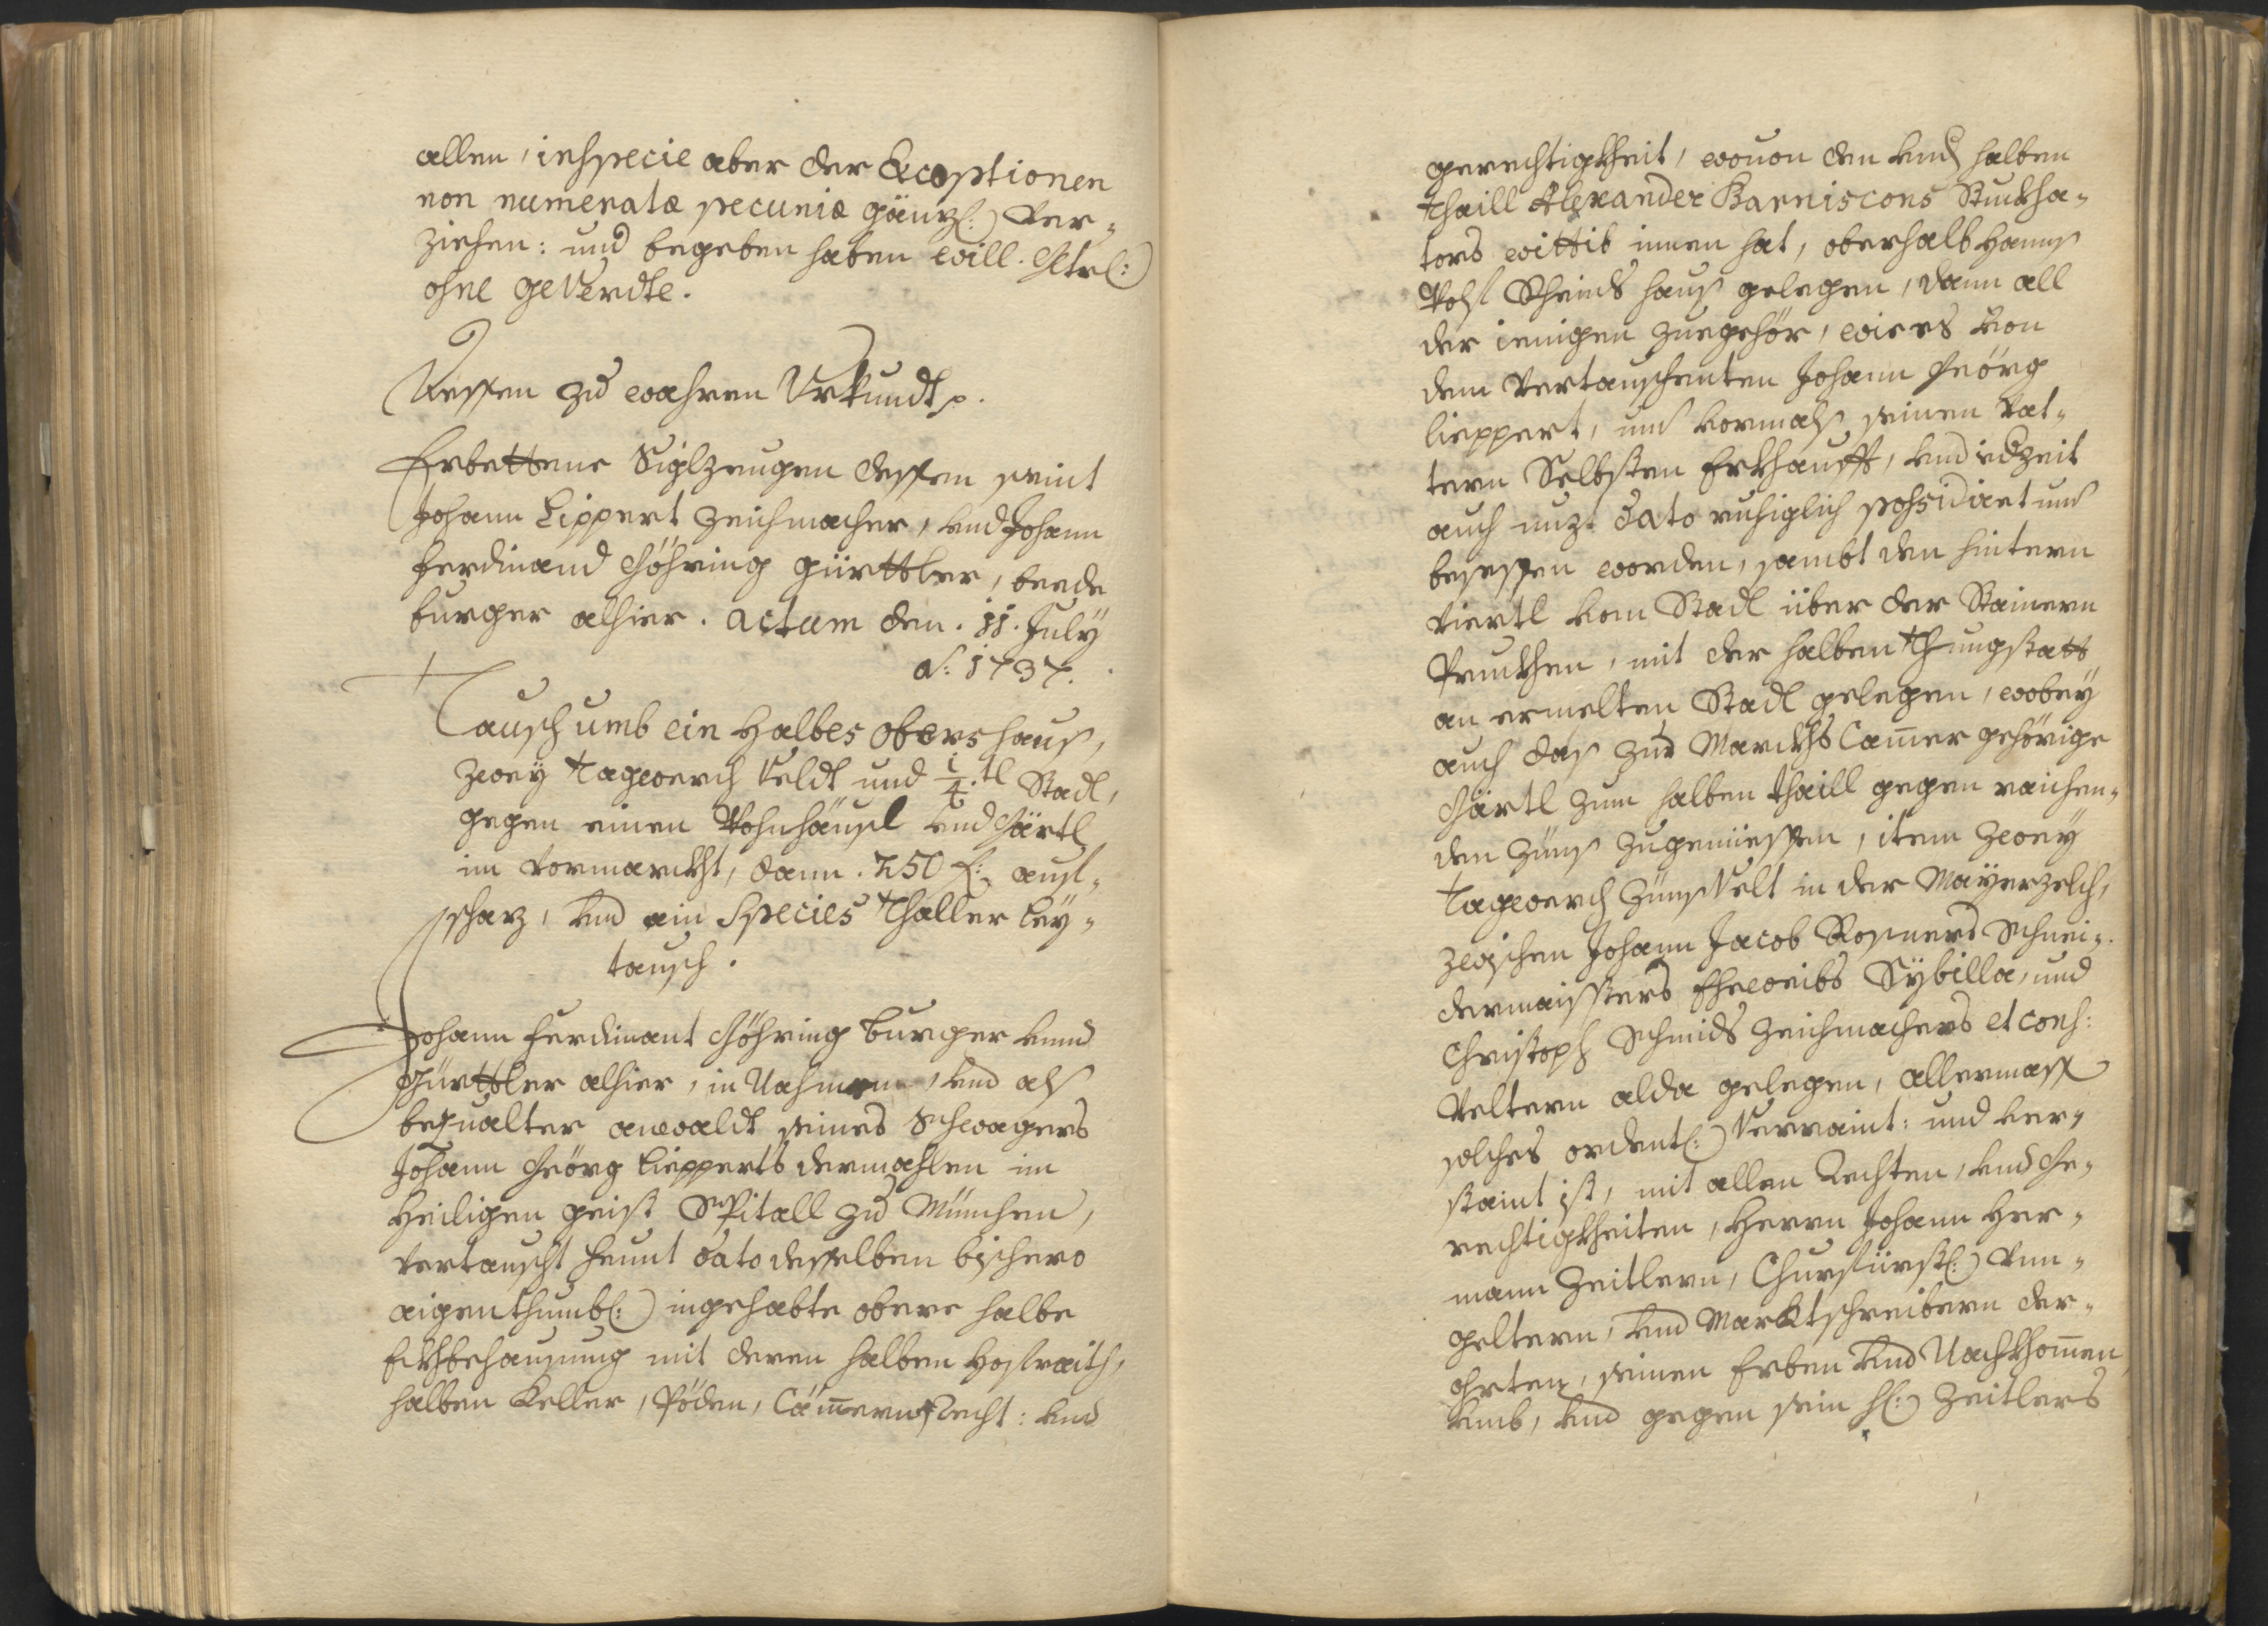 allen, inspecie aber der Exceptionen
non numeratæ pecuniæ gänzl: ver-
ziehen: und begeben haben will. Etrl:
ohne geverdte.
Dessen zu wahren Urkundt p.
Erbettene Siglzeugen dessen seint
Johann Lippert Zeichmacher, und Johann
Ferdinand Göhring gürttler, beede
burger alhier. Actum den. 11. July
Aõ: 1737.
Tausch umb ein Halbes obers haus,
zwey tagwerch Veldt und 1/4.tl Stadl,
gegen einen Wohnhäusl und Gärtl
im Vormarckht, dann. 250 f: auf-
scharz, und ain Species thaller ley-
tausch.
Johann Ferdinant Göhring burger unnd
Gürttler alhier, in Nahmen, und als
bequalter anwaldt seines Schwagers
Johann Geörg Lipperts dermahlen im
Heiligen geist Spitall zu München,
vertauscht heunt dato desselben bishero
aigenthumbl: ingehabte obere halbe
Eckhbehausung mit deren halben Hofraith,
halben Keller, Pöden, Cämmern, Recht: und
gerechtigkheit, wovon den und halben
thaill Alexander Barniscons Stuckha-
tors wittib innen hat, oberhalb Hanns
Wolf Schmids haus gelegen, dann all
der ienigen zuegehör, wie es von
dem vertauschenten Johann Geörg
Lieppert, und vormals seinen Vat-
tern Selbsten Erkhaufft, und iedzeit
auch unz. dato ruhiglich possidiret und
besessen worden, sambt den hintern
Viertl vom Stadl über der Stainern
Pruckhen, mit der halben thungstatt
an ermelten Stadl gelegen, wobey
auch das zur Marckhts Cammer gehörige
Gärtl zum halben thaill gegen raichen-
den Züns zugeniessen, item zwey
tagwerch Zünsvelt in der Mayrzelch,
zwischen Johann Jacob Rosners Schnei-
dermaisters Eheweibs Sybilla, und
Christoph Schmids Zeichmachers et cons:
Veltern alda gelegen, allermass
solches ordentl: Verraint: und ver-
staint ist, mit allen Rechten, und Ge-
rechtigkheiten, Herrn Johann Her-
mann Zeitlern, Churfürstl: Um-
geltern, und Marktschreibern der-
ohrten, seinen Erben und Nachkhommen,
umb, und gegen sein H: Zeitlers